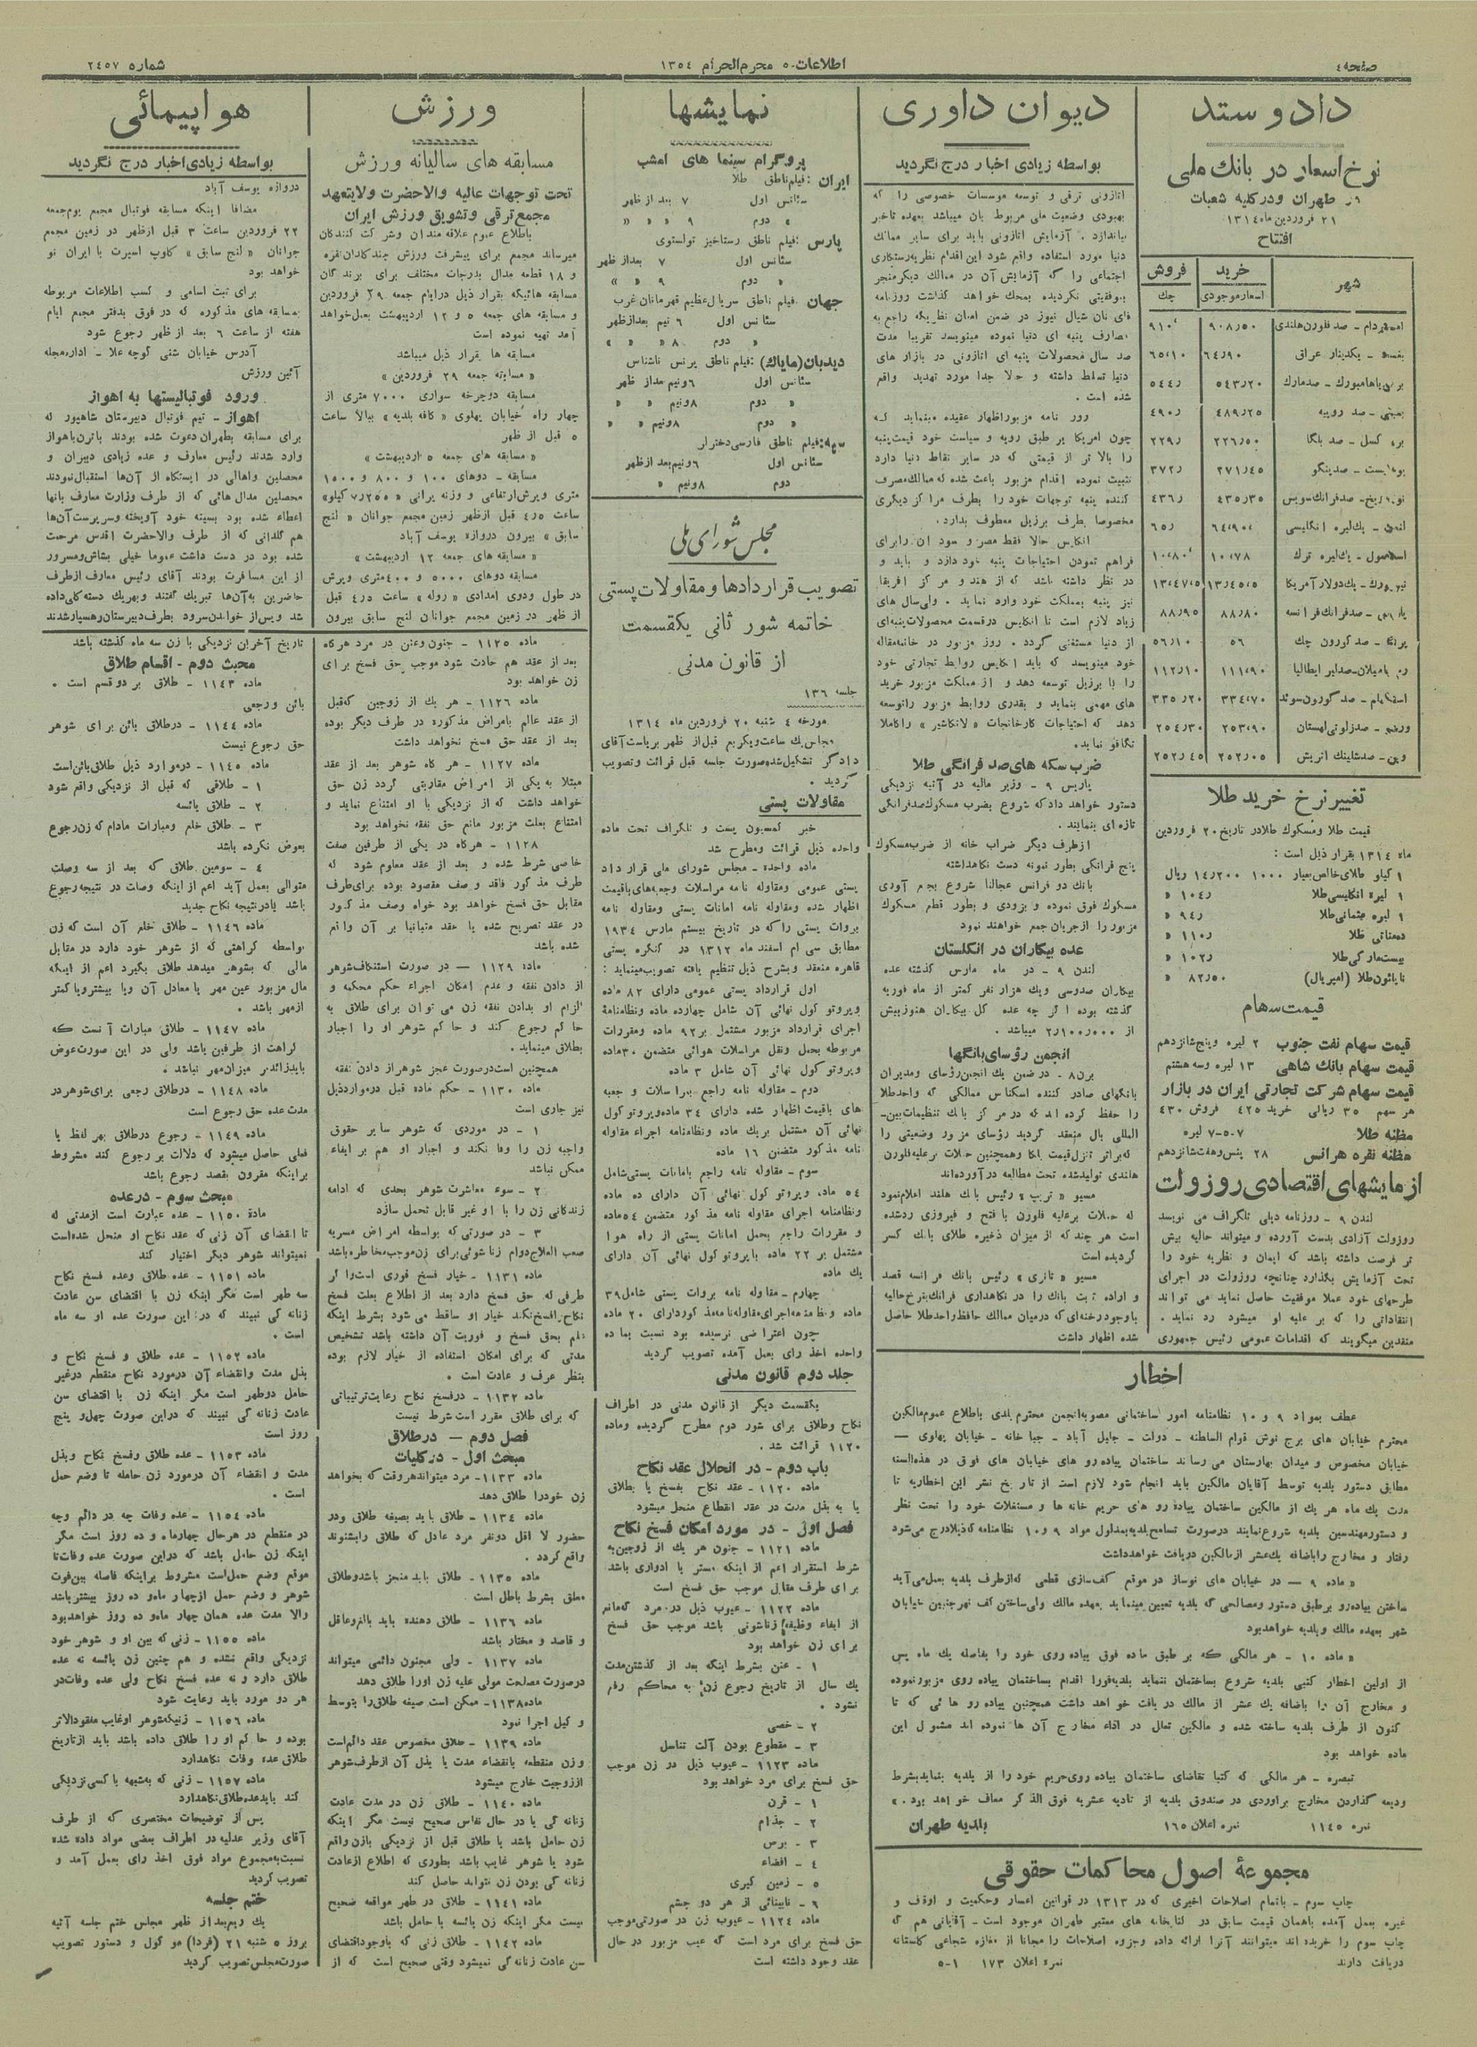 صفحه ٤
اطلاعات - ٥ محرم الحرام ١٣٥٤
شماره ٢٤٥٧
داد و ستد
نرخ اسعار در بانک ملی
در طهران و در کلیه شعبات
٢١ فروردین ماه ١٣١٤
افتتاح
شهر
خرید
فروش
اسعار موجودی
چك
امستردام - صد فلورن هلندی ٩٠٨٫٥٠ ٩١٠٫
بغداد - یکدینار عراق ٦٤٫٩٠ ٦٥٫١٠
برلن یا هامبورك - صد مارك ٥٤٣٫٢٠ ٥٤٤٫
بمبئی - صد روپیه ٤٨٩٫٢٥ ٤٩٠٫
بروکسل - صد بلگا ٢٢٦٫٥٠ ٢٢٩٫
بوداپست - صد پنگو ٢٧١٫٤٥ ٣٧٢٫
زوریخ - صد فرانك سویس ٤٣٥٫٣٥ ٤٣٦٫
لندن - یك لیره انگلیسی ٦٤٫٩٠ ٦٥٫
اسلامبول - یك لیره ترك ١٠٫٧٨ ١٠٫٨٠
نیویورك - یك دولار آمریکا ١٣٫٤٥٫٥ ١٣٫٤٧٫٥
پاریس - صد فرانك فرانسه ٨٨٫٨٠ ٨٨٫٩٥
پراگ - صد کورون چك ٥٦ ٥٦٫١٠
رم یا میلان - صد لیر ایطالیا ١١١٫٩٠ ١١٢٫١٠
استکهلم - صد کورون سوئد ٣٣٤٫٧٠ ٣٣٥٫٢٠
ورشو - صد زلوتی لهستان ٢٥٣٫٩٠ ٢٥٤٫٣٠
وین - صد شلینك اتریش ٢٥٢٫٠٥ ٢٥٢٫٤٥
تغییر نرخ خرید طلا
قیمت طلا و مسکوك طلا در تاریخ ٢٠ فروردین
ماه ١٣١٤ بقرار ذیل است :
١ کیلو طلای خالص بعیار ١٠٠٠ ١٤٫٢٠٠ ریال
١ لیره انگلیسی طلا ١٠٤٫ «
١ لیره عثمانی طلا ٩٤٫ «
ده مناتی طلا ١١٠٫ «
بیست مارکی طلا ١٠٢٫ «
ناپلئون طلا (امپریال) ٨٢٫٥٠ «
قیمت سهام
قیمت سهام نفت جنوب ٢ لیره و پنج شانزدهم
قیمت سهام بانك شاهی ١٣ لیره و سه هشتم
قیمت سهام شرکت تجارتی ایران در بازار
هر سهم ٣٥ ریالی خرید ٤٢٥ فروش ٤٣٠
مظنه طلا ٧-٥-٧ لیره
مظنه نقره هر انس ٢٨ پنس و هفت شانزدهم
آزمایشهای اقتصادی روزولت
لندن ٩ - روزنامه دیلی تلگراف می نویسد
روزولت آزادی بدست آورده و میتواند حالیه بیش
تر فرصت داشته باشد که ایمان و نظریه خود را
تحت آزمایش بگذارد چنانچه روزولت در اجرای
طرحهای خود عملا موفقیت حاصل نماید می تواند
انتقاداتی را که بر علیه او میشود رد نماید.
منقدین میگویند که اقدامات عمومی رئیس جمهوری
دیوان داوری
بواسطه زیادی اخبار درج نگردید
اتازونی ترقی و توسعه موسسات خصوصی را که
بهبودی وضعیت ملی مربوط بان میباشد بعهده تاخیر
بیاندازد . آزمایش اتازونی باید برای سایر ممالك
دنیا مورد استفاده واقع شود این اقدام نظریه رستکاری
اجتماعی را که آزمایش آن در ممالك دیگر منجر
بموفقیتی نگردیده بمحك خواهد گذاشت روزنامه
فای نان شیال نیوز در ضمن اعلان نظریکه راجع به
مصارف پنبه ای دنیا نموده مینویسد تقریبا مدت
صد سال محصولات پنبه ای اتازونی در بازار های
دنیا تسلط داشته و حالا جدا مورد تهدید واقع
شده است .
روز نامه مزبور اظهار عقیده مینماید که
چون امریکا بر طبق رویه و سیاست خود قیمت پنبه
را بالا تر از قیمتی که در سایر نقاط دنیا دارد
تثبیت نموده اقدام مزبور باعث شده که ممالك مصرف
کننده پنبه توجهات خود را بطرف مراکز دیگری
مخصوصا بطرف برزیل معطوف بدارد.
انگلیس حالا فقط مصر و سودان را برای
فراهم نمودن احتیاجات پنبه خود دارد و باید
در نظر داشته باشد که از هند و مرکز افریقا
نیز پنبه بمملکت خود وارد نماید . ولی سال های
زیاد لازم است تا انگلیس در قسمت محصولات پنبه ای
از دنیا مستغنی گردد . روز مزبور در خاتمه مقاله
خود مینویسد که باید انگلیس روابط تجارتی خود
را با برزیل توسعه دهد و از مملکت مزبور خرید
های مهمی بنماید و بقدری روابط مزبور را توسعه
دهد که احتیاجات کارخانجات «لانکاشیر» را کاملا
تکافو نماید.
ضرب سکه های صد فرانگی طلا
پاریس ٩ - وزیر مالیه در آتیه نزدیکی
دستور خواهد داد که شروع بضرب مسکوك صد فرانگی
تازه ای بنمایند.
از طرف دیگر ضراب خانه از ضرب مسکوك
پنج فرانگی بطور نمونه دست نگاهداشته
بانك دو فرانس عجالتا شروع بجمع آوری
مسکوك فوق نموده و بزودی و بطور قطع مسکوك
مزبور را از جریان جمع خواهند نمود
عده بیکاران در انگلستان
لندن ٩ - در ماه مارس گذشته عده
بیکاران صد و سی و یك هزار نفر کمتر از ماه فوریه
گذشته بوده اگر چه عده کل بیکاران هنوز بیش
از ٢٫١٠٠٫٠٠٠ میباشد .
انجمن رؤسای بانگها
برن ٨ - در ضمن یك انجمن رؤسای و مدیران
بانگهای صادر کننده اسکناس ممالکی که واحد طلا
را حفظ کرده اند که در مرکز بانك تنظیمات بین-
المللی بال منعقد گردید رؤسای مزبور وضعیتی را
که بر اثر تنزل قیمت بلگا و همچنین حملات بر علیه فلورن
هلندی تولید شده تحت مطالعه در آورده اند
مسیو « تریپ » رئیس بانك هلند اعلام نمود
که حملات بر علیه فلورن با فتح و فیروزی رد شده
است هر چند که از میزان ذخیره طلای بانك کسر
گردیده است
مسیو « تانری » رئیس بانك فرانسه قصد
و اراده ثابت بانك را در نگاهداری فرانك بنرخ حالیه
با وجود رخنه ای که در میان ممالك حافظ واحد طلا حاصل
شده اظهار داشت
اخطار
عطف بمواد ٩ و ١٠ نظامنامه امور ساختمانی مصوبه انجمن محترم بلدی باطلاع عموم مالکین
محترم خیابان های برج نوش قوام السلطنه - دولت - جلیل آباد - جبا خانه - خیابان پهلوی -
خیابان مخصوص و میدان بهارستان می رساند ساختمان پیاده رو های خیابان های فوق در هذه السنه
مطابق دستور بلدیه توسط آقایان مالکین باید انجام شود لازم است از تاریخ نشر این اخطاریه تا
مدت یك ماه هر یك از مالکین ساختمان پیاده رو های حریم خانه ها و مستغلات خود را تحت نظر
و دستور مهندسین بلدیه شروع نمایند در صورت تسامح بلدیه بمدلول مواد ٩ و ١٠ نظامنامه که ذیلا درج می شود
رفتار و مخارج را باضافه یك عشر از مالکین دریافت خواهد داشت
« ماده ٩ - در خیابان های نوساز در موقع کف سازی قطعی که از طرف بلدیه بعمل می آید
ساختن پیاده رو بر طبق دستور و مصالحی که بلدیه تعیین مینماید بعهده مالك ولی ساختن کف نهر چنین خیابان
شهر بعهده مالك و بلدیه خواهد بود
« ماده ١٠ - هر مالکی که بر طبق ماده فوق پیاده روی خود را بفاصله یك ماه پس
از اولین اخطار کتبی بلدیه شروع بساختمان ننماید بلدیه فورا اقدام بساختمان پیاده روی مزبور نموده
و مخارج آن را باضافه یك عشر از مالك دریافت خواهد داشت همچنین پیاده رو هائی که تا
کنون از طرف بلدیه ساخته شده و مالکین تعلل در اداء مخارج آن ها نموده اند مشمول این
ماده خواهد بود
تبصره - هر مالکی که کتبا تقاضای ساختمان پیاده روی حریم خود را از بلدیه بنماید بشرط
ودیعه گذاردن مخارج براوردی در صندوق بلدیه از تادیه عشریه فوق الذکر معاف خواهد بود.»
نمره ١١٤٥ نمره اعلان ١٦٥ بلدیه طهران
مجموعهٔ اصول محاکمات حقوقی
چاپ سوم - باتمام اصلاحات اخیری که در ١٣١٣ در قوانین اعسار و حکمیت و اوقف و
غیره بعمل آمده باهمان قیمت سابق در کتابخانه های معتبر طهران موجود است - آقایانی هم که
چاپ سوم را خریده اند میتوانند آنرا ارائه داده و جزوه اصلاحات را مجانا از مغازه شجاعی گلستانه
دریافت دارند نمره اعلان ١٧٣ ١-٥
نمایشها
پروگرام سینما های امشب
ایران : فیلم ناطق طلا
سئانس اول ٧ بعد از ظهر
« دوم ٩ « «
پارس : فیلم ناطق رستاخیز تولستوی
سئانس اول ٧ بعد از ظهر
« دوم ٩ « «
جهان : فیلم ناطق سریال عظیم قهرمانان غرب
سئانس اول ٦ نیم بعد از ظهر
« دوم ٨ « «
دیدبان (مایاك) : فیلم ناطق پرنس ناشناس
سئانس اول ٦ و نیم بعد از ظهر
« دوم ٨ و نیم « «
سپه : فیلم ناطق فارسی دختر لر
سئانس اول ٦ و نیم بعد از ظهر
دوم ٨ و نیم «
مجلس شورای ملی
تصویب قراردادها و مقاولات پستی
خاتمه شور ثانی یکقسمت
از قانون مدنی
جلسه ١٣٦
مورخه ٤ شنبه ٢٠ فروردین ماه ١٣١٤
مجلس یك ساعت و یکربع قبل از ظهر بریاست آقای
دادگر تشکیل شده صورت جلسه قبل قرائت و تصویب
گردید .
مقاولات پستی
خبر کمسیون پست و تلگراف تحت ماده
واحده ذیل قرائت و مطرح شد
ماده واحده - مجلس شورای ملی قرار داد
پستی عمومی و مقاوله نامه مراسلات و جعبه های باقیمت
اظهار شده و مقاوله نامه امانات پستی و مقاوله نامه
بروات پستی را که در تاریخ بیستم مارس ١٩٣٤
مطابق سی ام اسفند ماه ١٣١٢ در کنگره پستی
قاهره منعقد و بشرح ذیل تنظیم یافته تصویب مینماید :
اول قرارداد پستی عمومی دارای ٨٢ ماده
و پروتو کول نهائی آن شامل چهارده ماده و نظامنامهٔ
اجرای قرارداد مزبور مشتمل بر ٩٢ ماده و مقررات
مربوطه بحمل و نقل مراسلات هوائی متضمن ٣٠ ماده
و پروتو کول نهائی آن شامل ٣ ماده
دوم - مقاوله نامه راجع بمراسلات و جعبه
های باقیمت اظهار شده دارای ٣٤ ماده و پروتو کول
نهائی آن مشتمل بر یك ماده و نظامنامه اجراء مقاوله
نامه مذکور متضمن ١٦ ماده
سوم - مقاوله نامه راجع بامانات پستی شامل
٥٤ ماده و پروتو کول نهائی آن دارای ده ماده
و نظامنامه اجرای مقاوله نامه مذکور متضمن ٥٤ ماده
و مقررات راجع بحمل امانات پستی از راه هوا
مشتمل بر ٢٢ ماده با پروتو کول نهائی آن دارای
یك ماده
چهارم - مقاوله نامه بروات پستی شامل ٣٩
ماده و نظامنامه اجرای مقاوله نامه مذکور دارای ٢٠ ماده
چون اعتراضی نرسیده بود نسبت بماده
واحده اخذ رای بعمل آمده تصویب گردید
جلد دوم قانون مدنی
یکقسمت دیگر از قانون مدنی در اطراف
نکاح و طلاق برای شور دوم مطرح گردیده و ماده
١١٢٠ قرائت شد .
باب دوم - در انحلال عقد نکاح
ماده ١١٢٠ - عقد نکاح بفسخ یا بطلاق
یا به بذل مدت در عقد انقطاع منحل میشود
فصل اول - در مورد امکان فسخ نکاح
ماده ١١٢١ - جنون هر یك از زوجین به
شرط استقرار اعم از اینکه مستمر یا ادواری باشد
برای طرف مقابل موجب حق فسخ است
ماده ١١٢٢ - عیوب ذیل در مرد که مانع
از ایفاء وظیفه زناشوئی باشد موجب حق فسخ
برای زن خواهد بود
١ - عنن بشرط اینکه بعد از گذشتن مدت
یك سال از تاریخ رجوع زن به محاکم رفع
نشود .
٢ - خصی
٣ - مقطوع بودن آلت تناسل
ماده ١١٢٣ - عیوب ذیل در زن موجب
حق فسخ برای مرد خواهد بود
١ - قرن
٢ - جذام
٣ - برص
٤ - افضاء
٥ - زمین گیری
٦ - نابینائی از هر دو چشم
ماده ١١٢٤ - عیوب زن در صورتی موجب
حق فسخ برای مرد است که عیب مزبور در حال
عقد وجود داشته است
ورزش
مسابقه های سالیانه ورزش
تحت توجهات عالیه والاحضرت ولایتعهد
مجمع ترقی و تشویق ورزش ایران
باطلاع عموم علاقه مندان و شرکت کنندگان
میرساند مجمع برای پیشرفت ورزش چند گلدان نقره
و ١٨ قطعه مدال بدرجات مختلف برای برندگان
مسابقه هائیکه بقرار ذیل در ایام جمعه ٢٩ فروردین
و مسابقه های جمعه ٥ و ١٢ اردیبهشت بعمل خواهد
آمد تهیه نموده است
مسابقه ها بقرار ذیل میباشد
« مسابقه جمعه ٢٩ فروردین »
مسابقه دوچرخه سواری ٧٠٠٠ متری از
چهار راه خیابان پهلوی « کافه بلدیه » ببالا ساعت
٥ قبل از ظهر
« مسابقه های جمعه ٥ اردیبهشت »
مسابقه - دوهای ١٠٠ و ٨٠٠ و ١٥٠٠
متری و پرش ارتفاعی و وزنه پرانی « ٧٫٢٥٥ کیلو »
ساعت ٤٫٥ قبل از ظهر زمین مجمع جوانان « لنج
سابق » بیرون دروازه یوسف آباد
« مسابقه های جمعه ١٢ اردیبهشت »
مسابقه دوهای ٥٠٠٠ و ٤٠٠ متری و پرش
در طول و دوی امدادی « روله » ساعت ٤٫٥ قبل
از ظهر در زمین مجمع جوانان لنج سابق بیرون
ماده ١١٢٥ - جنون و عنن در مرد هر گاه
بعد از عقد هم حادث شود موجب حق فسخ برای
زن خواهد بود
ماده ١١٢٦ - هر یك از زوجین که قبل
از عقد عالم بامراض مذکوره در طرف دیگر بوده
بعد از عقد حق فسخ نخواهد داشت
ماده ١١٢٧ - هر گاه شوهر بعد از عقد
مبتلا به یکی از امراض مقاربتی گردد زن حق
خواهد داشت که از نزدیکی با او امتناع نماید و
امتناع بعلت مزبور مانع حق نفقه نخواهد بود
١١٢٨ - هرگاه در یکی از طرفین صفت
خاصی شرط شده و بعد از عقد معلوم شود که
طرف مذکور فاقد وصف مقصود بوده برای طرف
مقابل حق فسخ خواهد بود خواه وصف مذکور
در عقد تصریح شده یا عقد متبانیا بر آن واقع
شده باشد
ماده ١١٢٩ - در صورت استنکاف شوهر
از دادن نفقه و عدم امکان اجراء حکم محکمه و
الزام او بدادن نفقه زن می توان برای طلاق به
حاکم رجوع کند و حاکم شوهر او را اجبار
بطلاق مینماید .
همچنین است در صورت عجز شوهر از دادن نفقه
ماده ١١٣٠ - حکم ماده قبل در موارد ذیل
نیز جاری است
١ - در موردی که شوهر سایر حقوق
واجبه زن را وفا نکند و اجبار او هم بر ایفاء
ممکن نباشد
٢ - سوء معاشرت شوهر بحدی که ادامه
زندگانی زن را با او غیر قابل تحمل سازد
٣ - در صورتی که بواسطه امراض مسریه
صعب العلاج دوام زناشوئی برای زن موجب مخاطره باشد
ماده ١١٣١ - خیار فسخ فوری است و اگر
طرفی که حق فسخ دارد بعد از اطلاع بعلت فسخ
نکاح را فسخ نکند خیار او ساقط می شود بشرط اینکه
علم بحق فسخ و فوریت آن داشته باشد تشخیص
مدتی که برای امکان استفاده از خیار لازم بوده
بنظر عرف و عادت است .
ماده ١١٣٢ - در فسخ نکاح رعایت ترتیباتی
که برای طلاق مقرر است شرط نیست
فصل دوم - در طلاق
مبحث اول - در کلیات
ماده ١١٣٣ - مرد میتواند هر وقت که بخواهد
زن خود را طلاق دهد
ماده ١١٣٤ - طلاق باید بصیغه طلاق و در
حضور لا اقل دو نفر مرد عادل که طلاق را بشنوند
واقع گردد .
ماده ١١٣٥ - طلاق باید منجز باشد و طلاق
معلق بشرط باطل است
ماده ١١٣٦ - طلاق دهنده باید بالغ و عاقل
و قاصد و مختار باشد
ماده ١١٣٧ - ولی مجنون دائمی میتواند
در صورت مصلحت مولی علیه زن او را طلاق دهد
ماده ١١٣٨ - ممکن است صیغه طلاق را بتوسط
وکیل اجرا نمود
ماده ١١٣٩ - طلاق مخصوص عقد دائم است
و زن منقطعه بانقضاء مدت یا بذل آن از طرف شوهر
از زوجیت خارج میشود
ماده ١١٤٠ - طلاق زن در مدت عادت
زنانه گی یا در حال نفاس صحیح نیست مگر اینکه
زن حامل باشد یا طلاق قبل از نزدیکی با زن واقع
شود یا شوهر غایب باشد بطوری که اطلاع از عادت
زنانه گی بودن زن نتواند حاصل کند
ماده ١١٤١ - طلاق در طهر مواقعه صحیح
نیست مگر اینکه زن یائسه یا حامل باشد
ماده ١١٤٢ - طلاق زنی که باوجود اقتضای
سن عادت زنانه گی نمیشود وقتی صحیح است که از
هواپیمائی
بواسطه زیادی اخبار درج نگردید
دروازه یوسف آباد
مضافا اینکه مسابقه فوتبال مجمع یوم جمعه
٢٢ فروردین ساعت ٣ قبل از ظهر در زمین مجمع
جوانان « لنج سابق » کلوپ اسپرت با ایران نو
خواهد بود
برای ثبت اسامی و کسب اطلاعات مربوطه
بمسابقه های مذکوره که در فوق بدفتر مجمع ایام
هفته از ساعت ٦ بعد از ظهر رجوع شود
آدرس خیابان شنی کوچه علا - اداره مجله
آئین ورزش
ورود فوتبالیستها به اهواز
اهواز - تیم فوتبال دبیرستان شاهپور که
برای مسابقه بطهران دعوت شده بودند باترن باهواز
وارد شدند رئیس معارف و عده زیادی دبیران و
محصلین و اهالی در ایستگاه از آن‌ها استقبال نمودند
محصلین مدال هائی که از طرف وزارت معارف بانها
اعطاء شده بود بسینه خود آویخته و سرپرست آن‌ها
هم گلدانی که از طرف والاحضرت اقدس مرحمت
شده بود در دست داشت عموما خیلی بشاش و مسرور
از این مسافرت بودند آقای رئیس معارف از طرف
حاضرین به آن‌ها تبریك گفتند و بهر یك دسته گلی داده
شد و پس از خواندن سرود بطرف دبیرستان رهسپار شدند
تاریخ آخرین نزدیکی با زن سه ماه گذشته باشد
مبحث دوم - اقسام طلاق
ماده ١١٤٣ - طلاق بر دو قسم است .
بائن و رجعی
ماده ١١٤٤ - در طلاق بائن برای شوهر
حق رجوع نیست
ماده ١١٤٥ - در موارد ذیل طلاق بائن است
١ - طلاقی که قبل از نزدیکی واقع شود
٢ - طلاق یائسه
٣ - طلاق خلع و مبارات مادام که زن رجوع
بعوض نکرده باشد
٤ - سومین طلاق که بعد از سه وصلت
متوالی بعمل آید اعم از اینکه وصلت در نتیجه رجوع
باشد یا در نتیجه نکاح جدید
ماده ١١٤٦ - طلاق خلع آن است که زن
بواسطه کراهتی که از شوهر خود دارد در مقابل
مالی که بشوهر میدهد طلاق بگیرد اعم از اینکه
مال مزبور عین مهر یا معادل آن و یا بیشتر و یا کمتر
از مهر باشد .
ماده ١١٤٧ - طلاق مبارات آنست که
کراهت از طرفین باشد ولی در این صورت عوض
باید زائد بر میزان مهر نباشد .
ماده ١١٤٨ - در طلاق رجعی برای شوهر در
مدت عده حق رجوع است
ماده ١١٤٩ - رجوع در طلاق بهر لفظ یا
فعلی حاصل میشود که دلالت بر رجوع کند مشروط
بر اینکه مقرون بقصد رجوع باشد
مبحث سوم - در عده
ماده ١١٥٠ - عده عبارت است از مدتی که
تا انقضای آن زنی که عقد نکاح او منحل شده است
نمیتواند شوهر دیگر اختیار کند
ماده ١١٥١ - عده طلاق و عده فسخ نکاح
سه طهر است مگر اینکه زن با اقتضای سن عادت
زنانه گی نبیند که در این صورت عده او سه ماه
است .
ماده ١١٥٢ - عده طلاق و فسخ نکاح و
بذل مدت و انقضاء آن در مورد نکاح منقطع در غیر
حامل دو طهر است مگر اینکه زن با اقتضای سن
عادت زنانه گی نبیند که در این صورت چهل و پنج
روز است
ماده ١١٥٣ - عده طلاق و فسخ نکاح و بذل
مدت و انقضاء آن در مورد زن حامله تا وضع حمل
است .
ماده ١١٥٤ - عده وفات چه در دائم و چه
در منقطع در هر حال چهار ماه و ده روز است مگر
اینکه زن حامل باشد که در این صورت عده وفات تا
موقع وضع حمل است مشروط بر اینکه فاصله بین فوت
شوهر و وضع حمل از چهار ماه و ده روز بیشتر باشد
والا مدت عده همان چهار ماه و ده روز خواهد بود
ماده ١١٥٥ - زنی که بین او و شوهر خود
نزدیکی واقع نشده و هم چنین زن یائسه نه عده
طلاق دارد و نه عده فسخ نکاح ولی عده وفات در
هر دو مورد باید رعایت شود
ماده ١١٥٦ - زنیکه شوهر او غایب مفقود الاثر
بوده و حاکم او را طلاق داده باشد باید از تاریخ
طلاق عده وفات نگاهدارد
ماده ١١٥٧ - زنی که به شبهه با کسی نزدیکی
کند باید عده طلاق نگاهدارد
پس از توضیحات مختصری که از طرف
آقای وزیر عدلیه در اطراف بعضی مواد داده شده
نسبت به مجموع مواد فوق اخذ رای بعمل آمد و
تصویب گردید
ختم جلسه
یك و ربع بعد از ظهر مجلس ختم جلسه آتیه
بروز ٥ شنبه ٢١ (فردا) موکول و دستور تصویب
صورت مجلس تصویب گردید